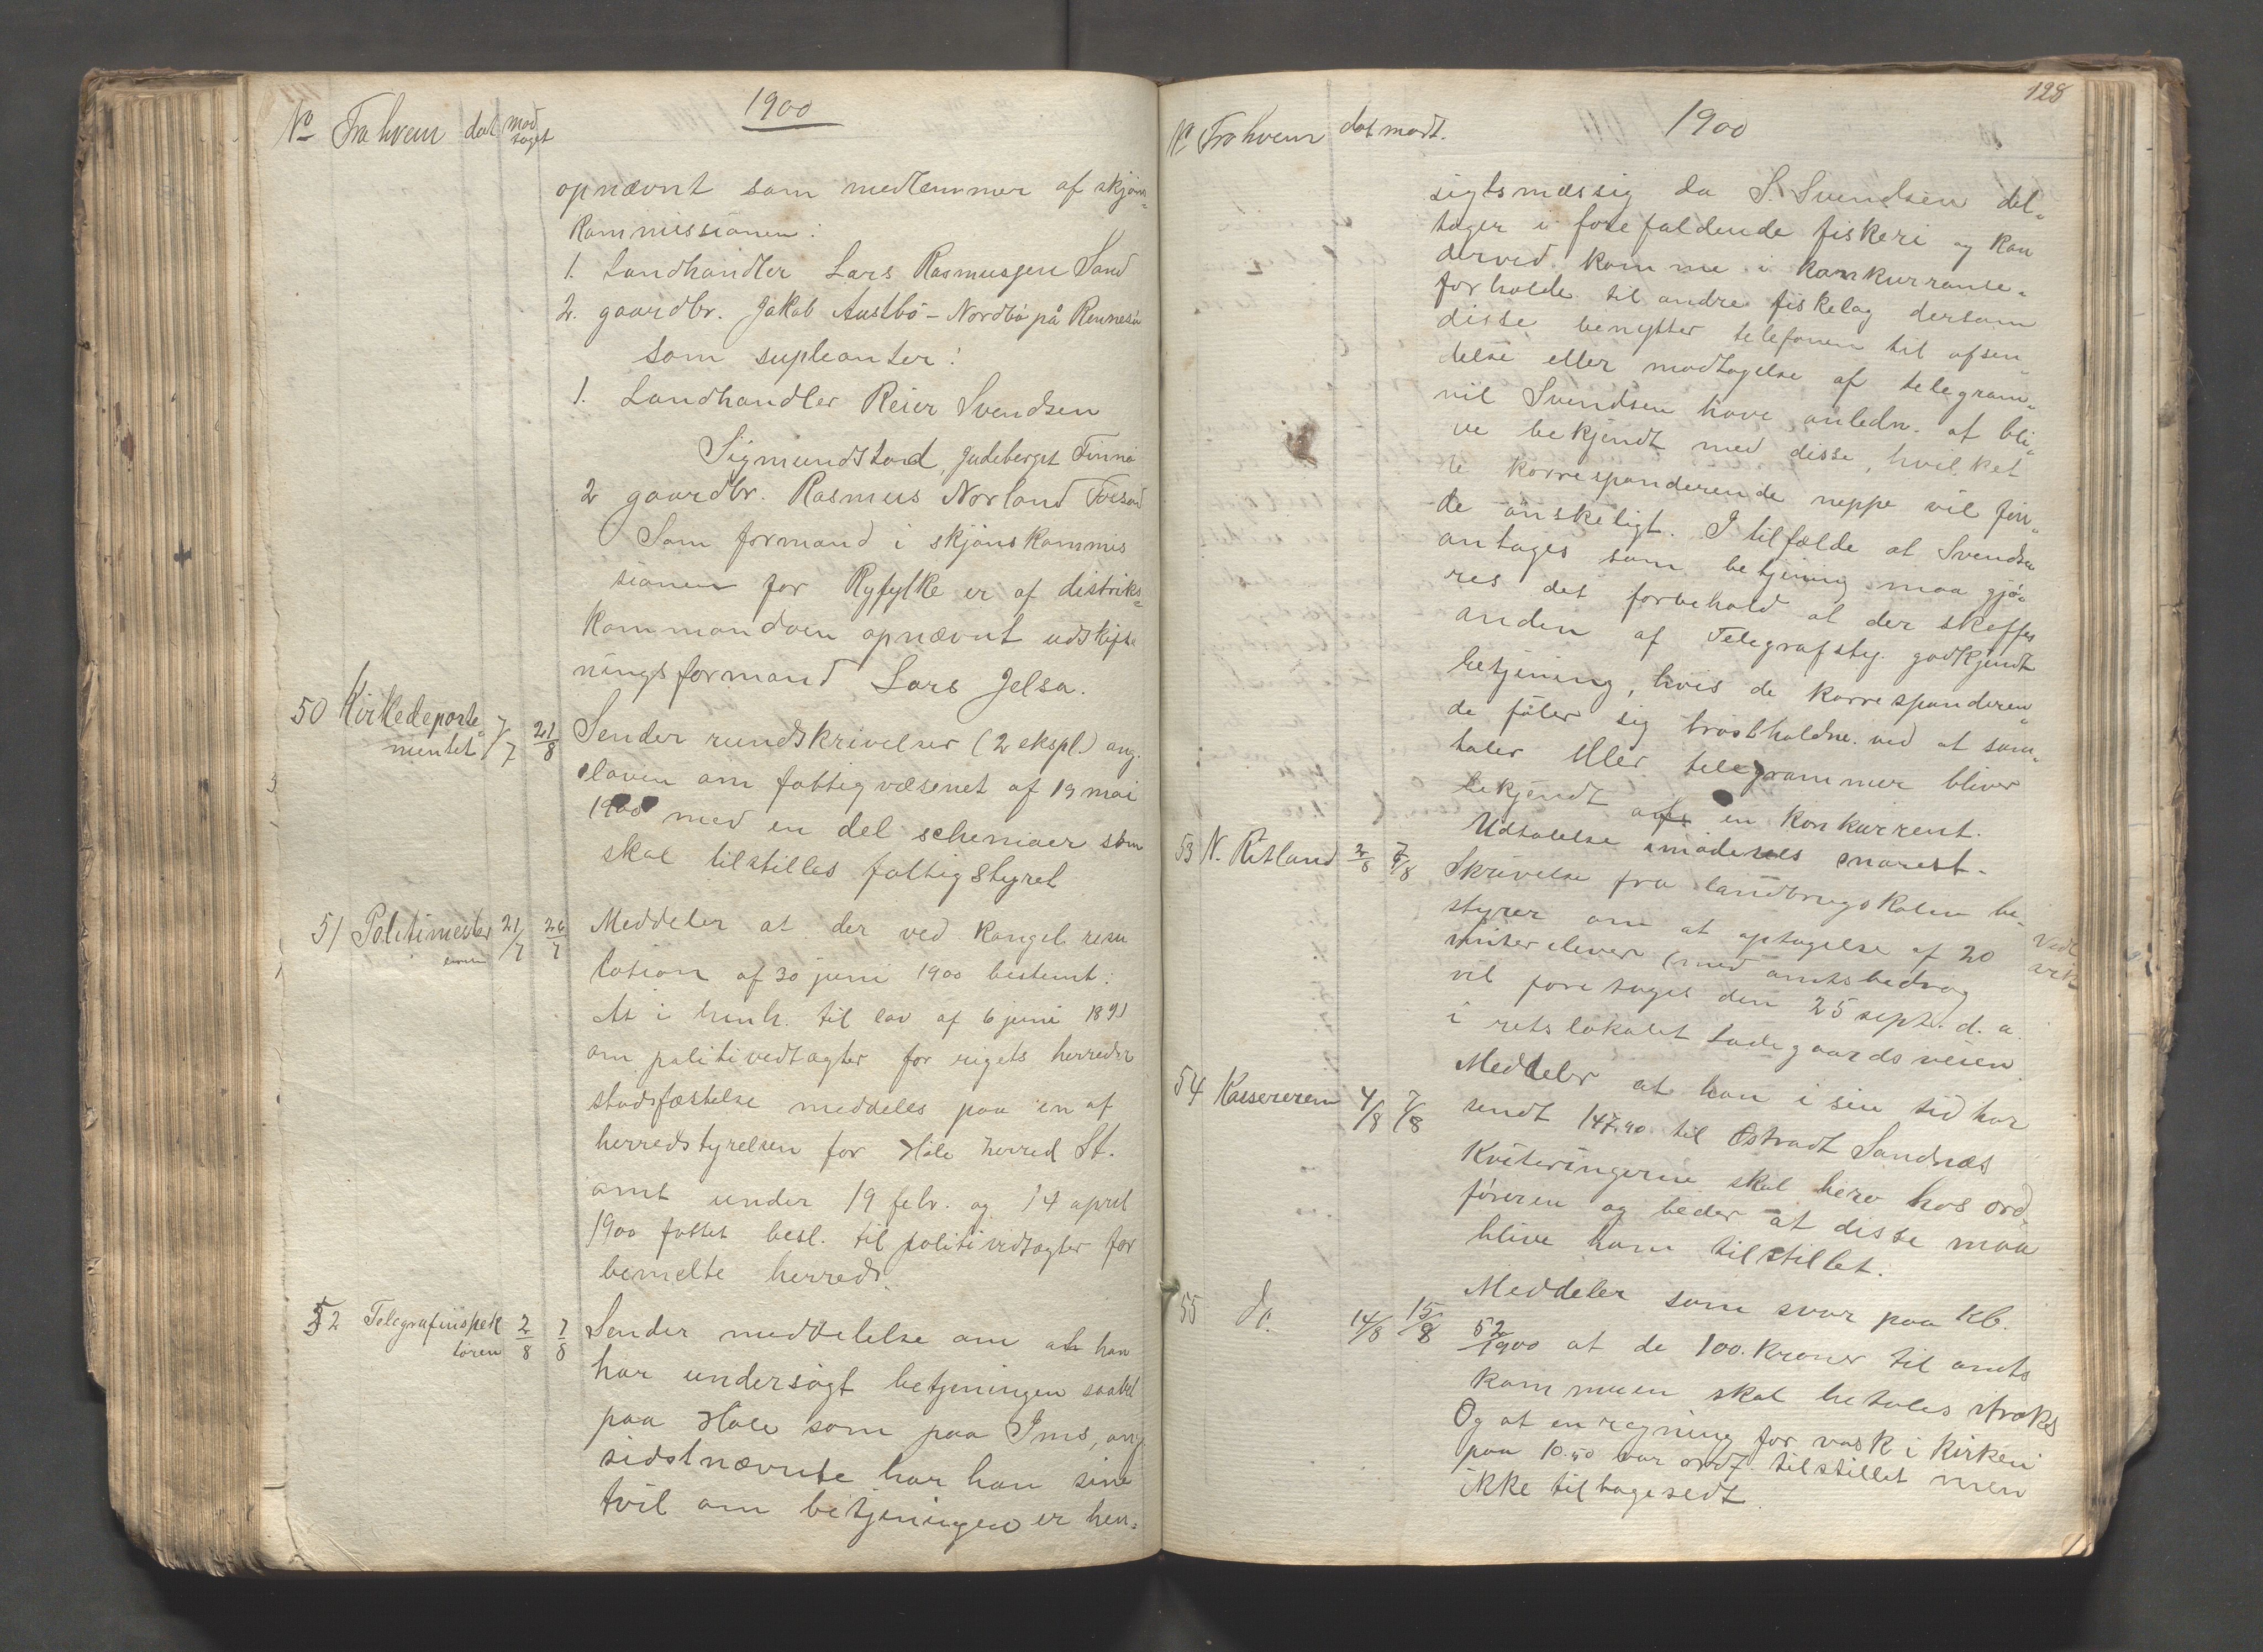 1900
No Fra hvem dat mod
taget
opnævnt som medlemmer af skjøns=
kommissionen:
1. Landhandler Lars Rasmussen Sand
2. gaardbr. Jakob Austbö - Nordbö på Rennesö
som supleanter:
1. Landhandler Reier Svendsen
Sigmundstad, Judeberget Finnö
2 gaardbr. Rasmus Norland Fossan
Som formand i skjønskommis
sionen for Ryfylke er af distriks=
kommandoen opnævnt udskift
ningsformand Lars Jelsa.
50 Kirkedeparte=
mentet 7/7 21/8 Sender rundskrivelser (2 ekspl.) ang.
loven om fattigvæsenet af 19 mai
1900 med en del schemaer som
skal tilstilles fattigstyret
51 Politimester
emm 21/7 26/7 Meddeler at der ved kongel. reso
lution af 30 juni 1900 bestemt:
At i henh. til lov af 6 juni 1891
om politivedtagter for rigets herreder
stadsfæstelse meddeles paa en af
herredstyrelsen for Hole herred St.
amt under 19 febr. og 14 april
1900 fattet besl. til politividtægter for
bemelte herred.
52 Telegrafinspek
tøren 2/8 7/8 Sender meddelelse om at han
har undersøgt betjeningen saavel
paa Hole som paa Ims, ang.
sidstnævnte har han sine
tvil om betjeningen er hen=
128
No Fra hvem dat modt. 1900
sigtsmæssig da S. Svendsen del=
tager i forefaldende fiskeri og kan
derved komme i konkurranse=
forholde til andre fiskelag dersom
disse benytter telefonen til afsen
delse eller modtagelse af telegram=
vil Svendsen have anledn. af bli=
ve bekjendt med disse, hvilket
de korresponderende neppe vil fin=
de ønskeligt. I tilfælde at Svendsen
antages som betjening maa gjö=
res det forbehold at der skaffes
anden af Telegrafsty. godkjendt
betjening, hvis de korresponderen=
de föler sig brøstholdne ved at sam=
taler eller telegrammer bliver
bekjendt af en konkurrent.
Udtalelse imødesees snarest.
53 N. Retland 2/8 7/8 Skrivelse fra landbrugskolen be=
styrer om at optagelse af 20
vinterelever (med amtsbedrag
vil foretages den 25 sept. d. a.
i retslokalet Ladegaardsveien.
54 Kassereren 4/8 7/8 Meddeler at han i sin tid har
sendt 147,90 til Østradt Sandnæs
Kviteringerne skal bero hos ord=
føreren og beder at disse maa
blive ham tilstillet.
55 do. 14/8 15/8 Meddeler som svar paa Kb.
52/1900 at de 100. kroner til amts
kommunen skal betales straks
Og at en regning for vask i kirken
paa 10.50 var ordf. tilstillet men
ikke tilbagesedt.